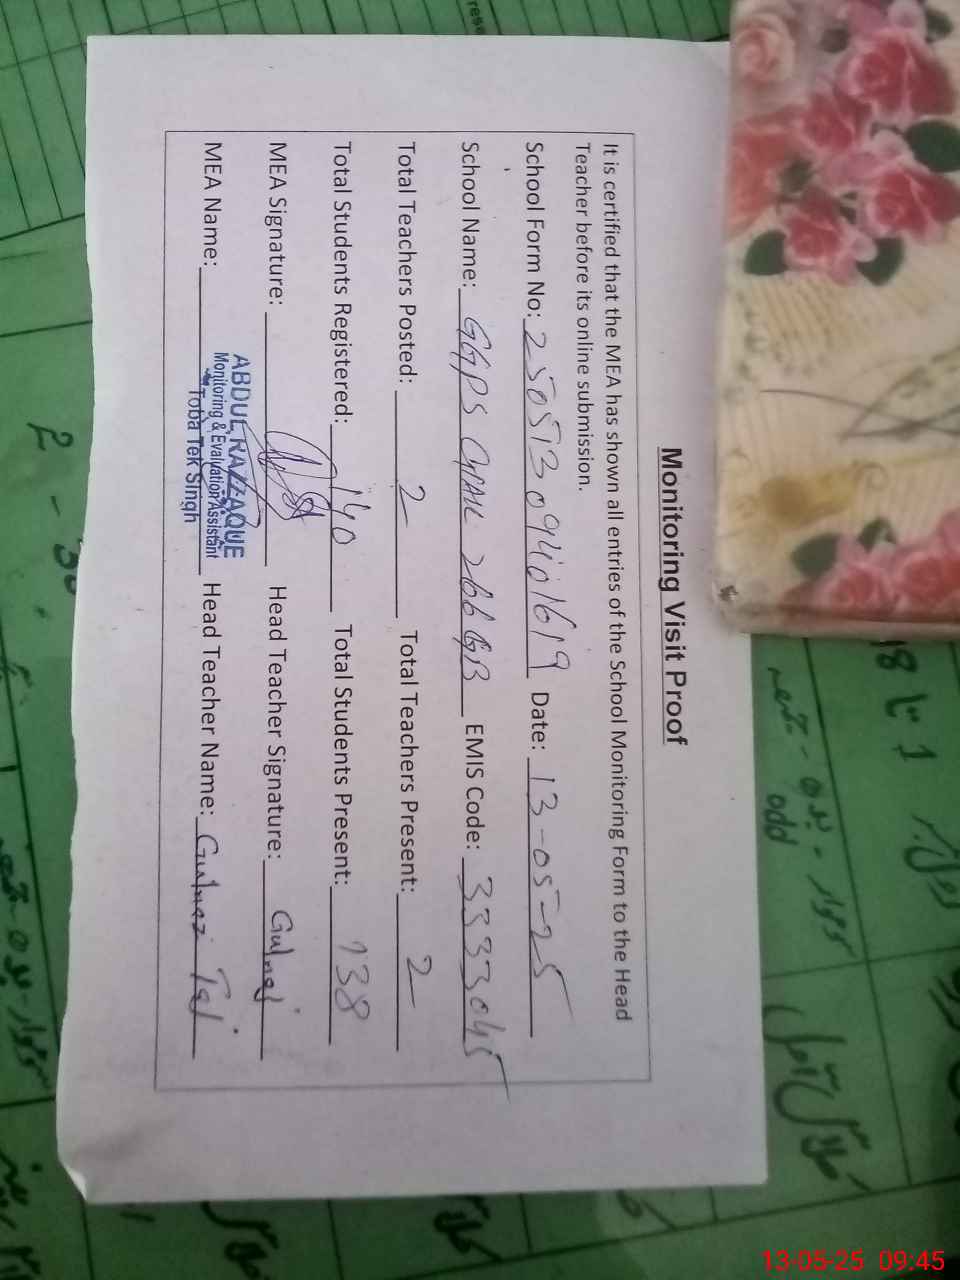 Monitoring Visit Proof
It is certified that the MEA has shown all entries of the School Monitoring Form to the Head
Teacher before its online submission.
School Form No: 2505130940161619 Date: 13-05-25
School Name: GGPS CHAK 266 GB EMIS Code: 33330415
Total Teachers Posted: 2 Total Teachers Present: 2
Total Students Registered: 140 Total Students Present: 138
MEA Signature: Head Teacher Signature: Gulnaz
MEA Name: ABDUL RAZZAQUE Head Teacher Name: Gulnaz Taj
Monitoring & Evaluation Assistant
Toba Tek Singh
odd
13-05-25 09:45